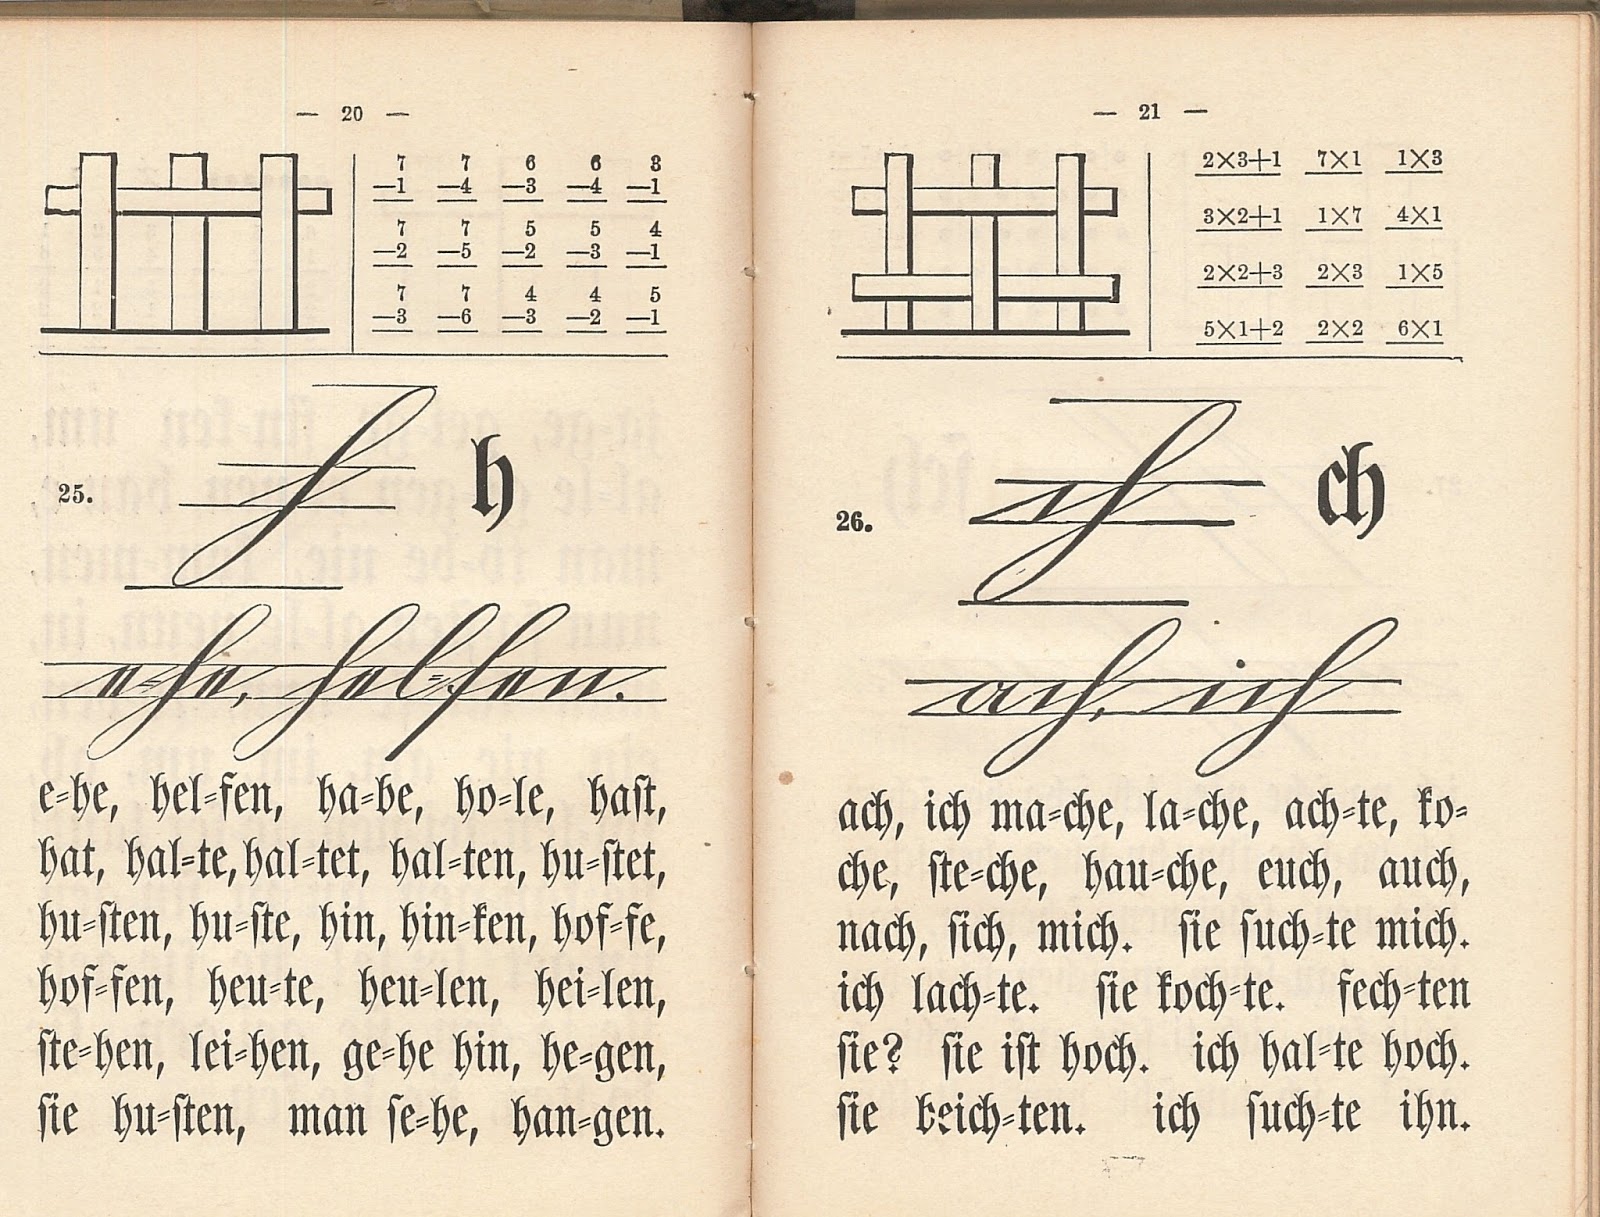 — 20 —
7 7 6 6 3
—1 —4 —3 —4 —1
7 7 5 5 4
—2 —5 —2 —3 —1
7 7 4 4 5
—3 —6 —3 —2 —1
25. h h
e-he, hel-fen.
e-he, hel-fen, ha-be, ho-le, haſt,
hat, hal-te, hal-tet, hal-ten, hu-ſtet,
hu-ſten, hu-ſte, hin, hin-ken, hof-fe,
hof-fen, heu-te, heu-len, hei-len,
ſte-hen, lei-hen, ge-he hin, he-gen,
ſie hu-ſten, man ſe-he, han-gen.
— 21 —
2×3+1 7×1 1×3
3×2+1 1×7 4×1
2×2+3 2×3 1×5
5×1+2 2×2 6×1
26. ch ch
ach, ich
ach, ich ma-che, la-che, ach-te, ko-
che, ſte-che, hau-che, euch, auch,
nach, ſich, mich. ſie ſuch-te mich.
ich lach-te. ſie koch-te. fech-ten
ſie? ſie iſt hoch. ich hal-te hoch.
ſie beich-ten. ich ſuch-te ihn.